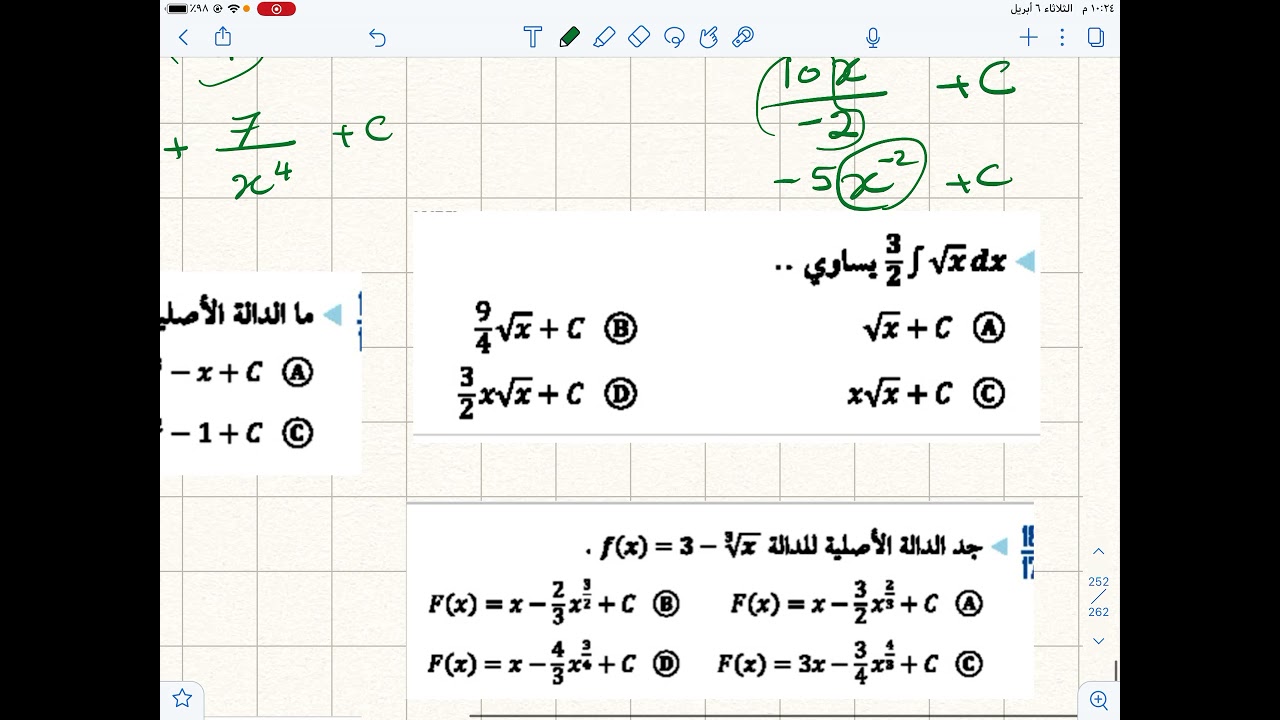 ١٠:٢٤ م الثلاثاء ٦ أبريل
٩٨٪
10x
-2
+ C
-5 x⁻² + C
+ 7/x⁴ + C
◀ 3/2 ∫ √x dx يساوي ..
Ⓐ √x + C
Ⓑ 9/4 √x + C
Ⓒ x√x + C
Ⓓ 3/2 x√x + C
◀ ما الدالة
Ⓐ − x + C
Ⓒ − 1 + C
◀ جد الدالة الأصلية للدالة f(x) = 3 − ∛x .
Ⓐ F(x) = x − 3/2 x^(2/3) + C
Ⓑ F(x) = x − 2/3 x^(3/2) + C
Ⓒ F(x) = 3x − 3/4 x^(4/3) + C
Ⓓ F(x) = x − 4/3 x^(3/4) + C
252
262